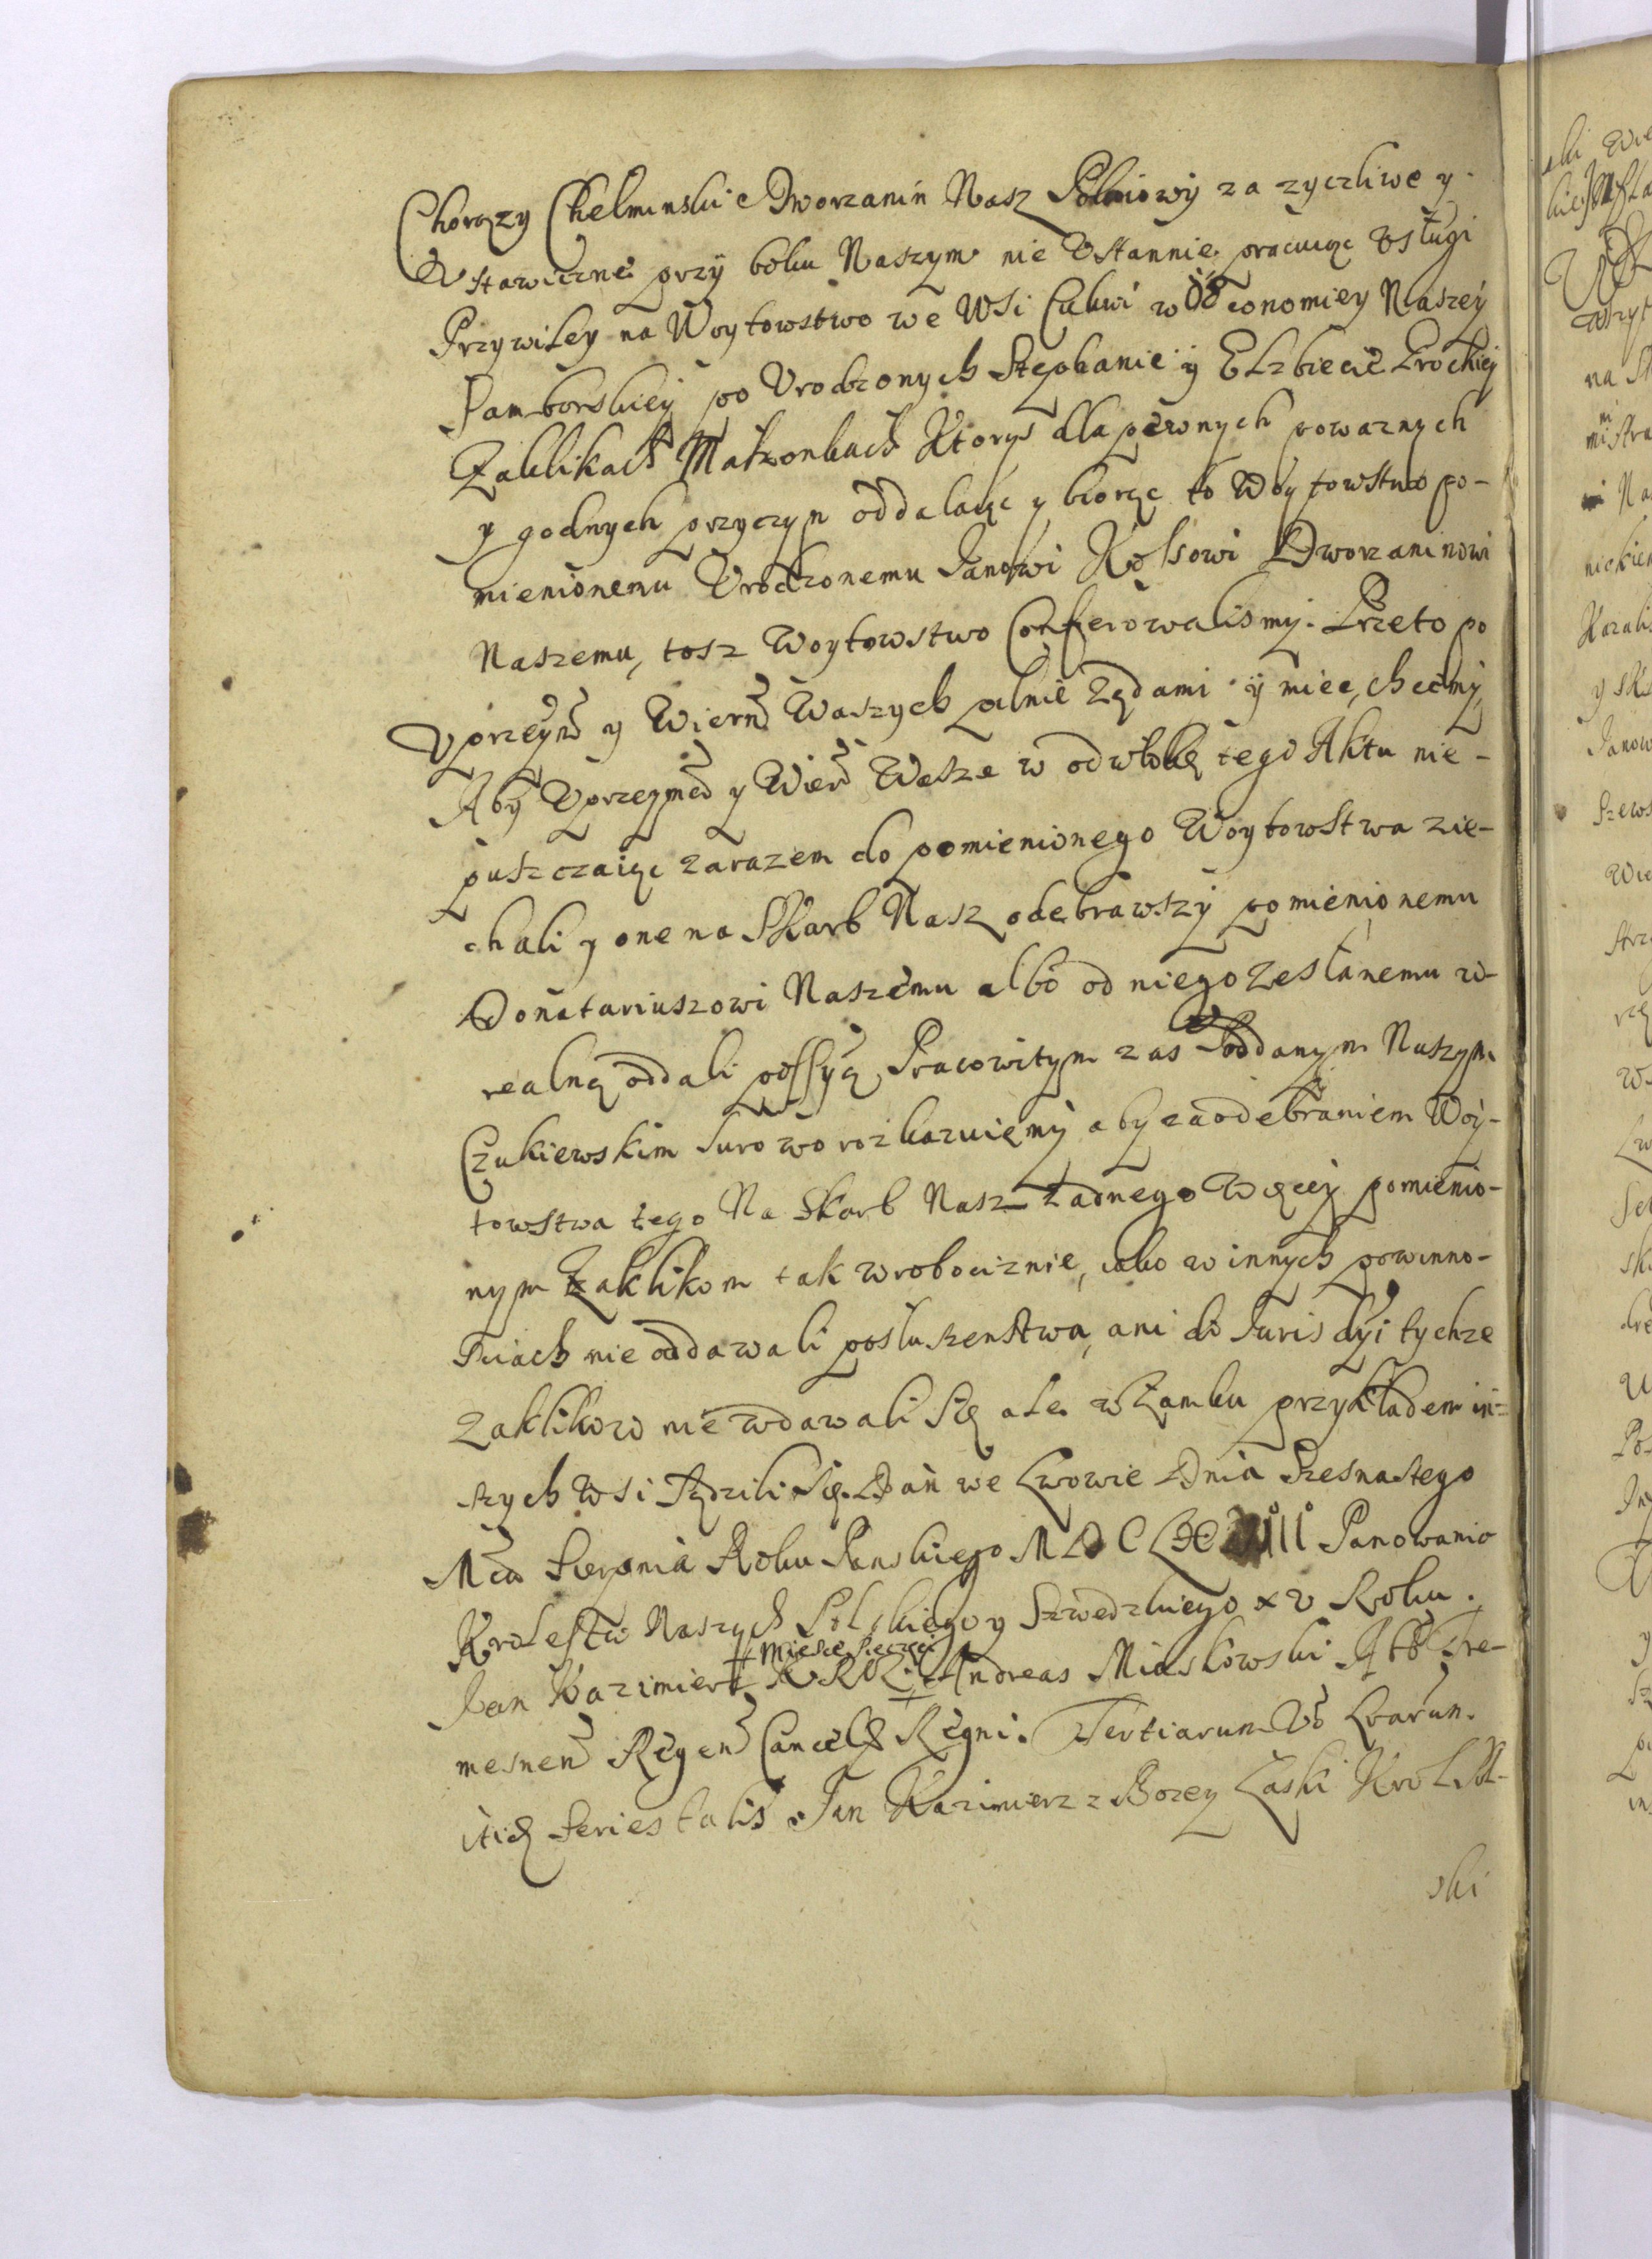 Chorązy Chelminski Dworzanin Nasz Pokoiowy za zyczliwe y
Vstawiczne przy boku Naszym nie Vstannie pracuiąc Vsługi
Przywiley na Woytowstwo we Wsi Cukwi w Oeconomiey Naszey
Samborskiey po Vrodzonych Stephanie y Elzbiecie Zrockiey
Zaklikach Małzonkach Ktorys dla pewnych powaznych
y godnych przyczyn oddalaiąc y biorąc to Woytowstwo po-
mienionemu Vrodzonemu Janowi Dworzaninowi
Naszemu, tosz Woytowstwo Conferowalismy. Przeto po
Vprzeym y Wiern Waszych pilnie Ządamÿ y miec, chcemy
Aby Vprzeymsc y Wiern Wasze w odwłokę tego Aktu nie-
puszczaiąc zarazem do pomienionego Woytowstwa zie-
chali y one na Skarb Nasz odebrawszy pomienionemu
Donatariuszowi Naszemu albo od niego Zesłanemu w
realną oddali possyą, Pracowitym zas Poddanym Naszym
Czukiewskim surowo rozkazuięmy aby za odebraniem Woy-
towstwa tego Na Skarb Nasz zadnego Więcey pomienio-
nym Zaklikom tak w robociznie, iako w innych powinno-
sciach nie oddawali posłuszenstwa, ani do Juris dyi tychze
Zaklikow nie wdawali Się ale w Zamku przykładem in=
szych wsi Sądzili Się. Dan we Lwowie Dnia Szesnastego
Mca Sierpnia Roku Panskiego MDCLXIII Panowania
Krolestw Naszych Polskiego y Szwedzkiego xv Roku.
Jan Kazimierz Krol # Mieisce pieczęci # Andreas Miaskowski Abb Tre-
mesnen Regens Cancell Regni. Tertiarum Vo Lrarum
sticz series talis. Jan Kazimierz z Bozey Łaski Krol Pol-
ski